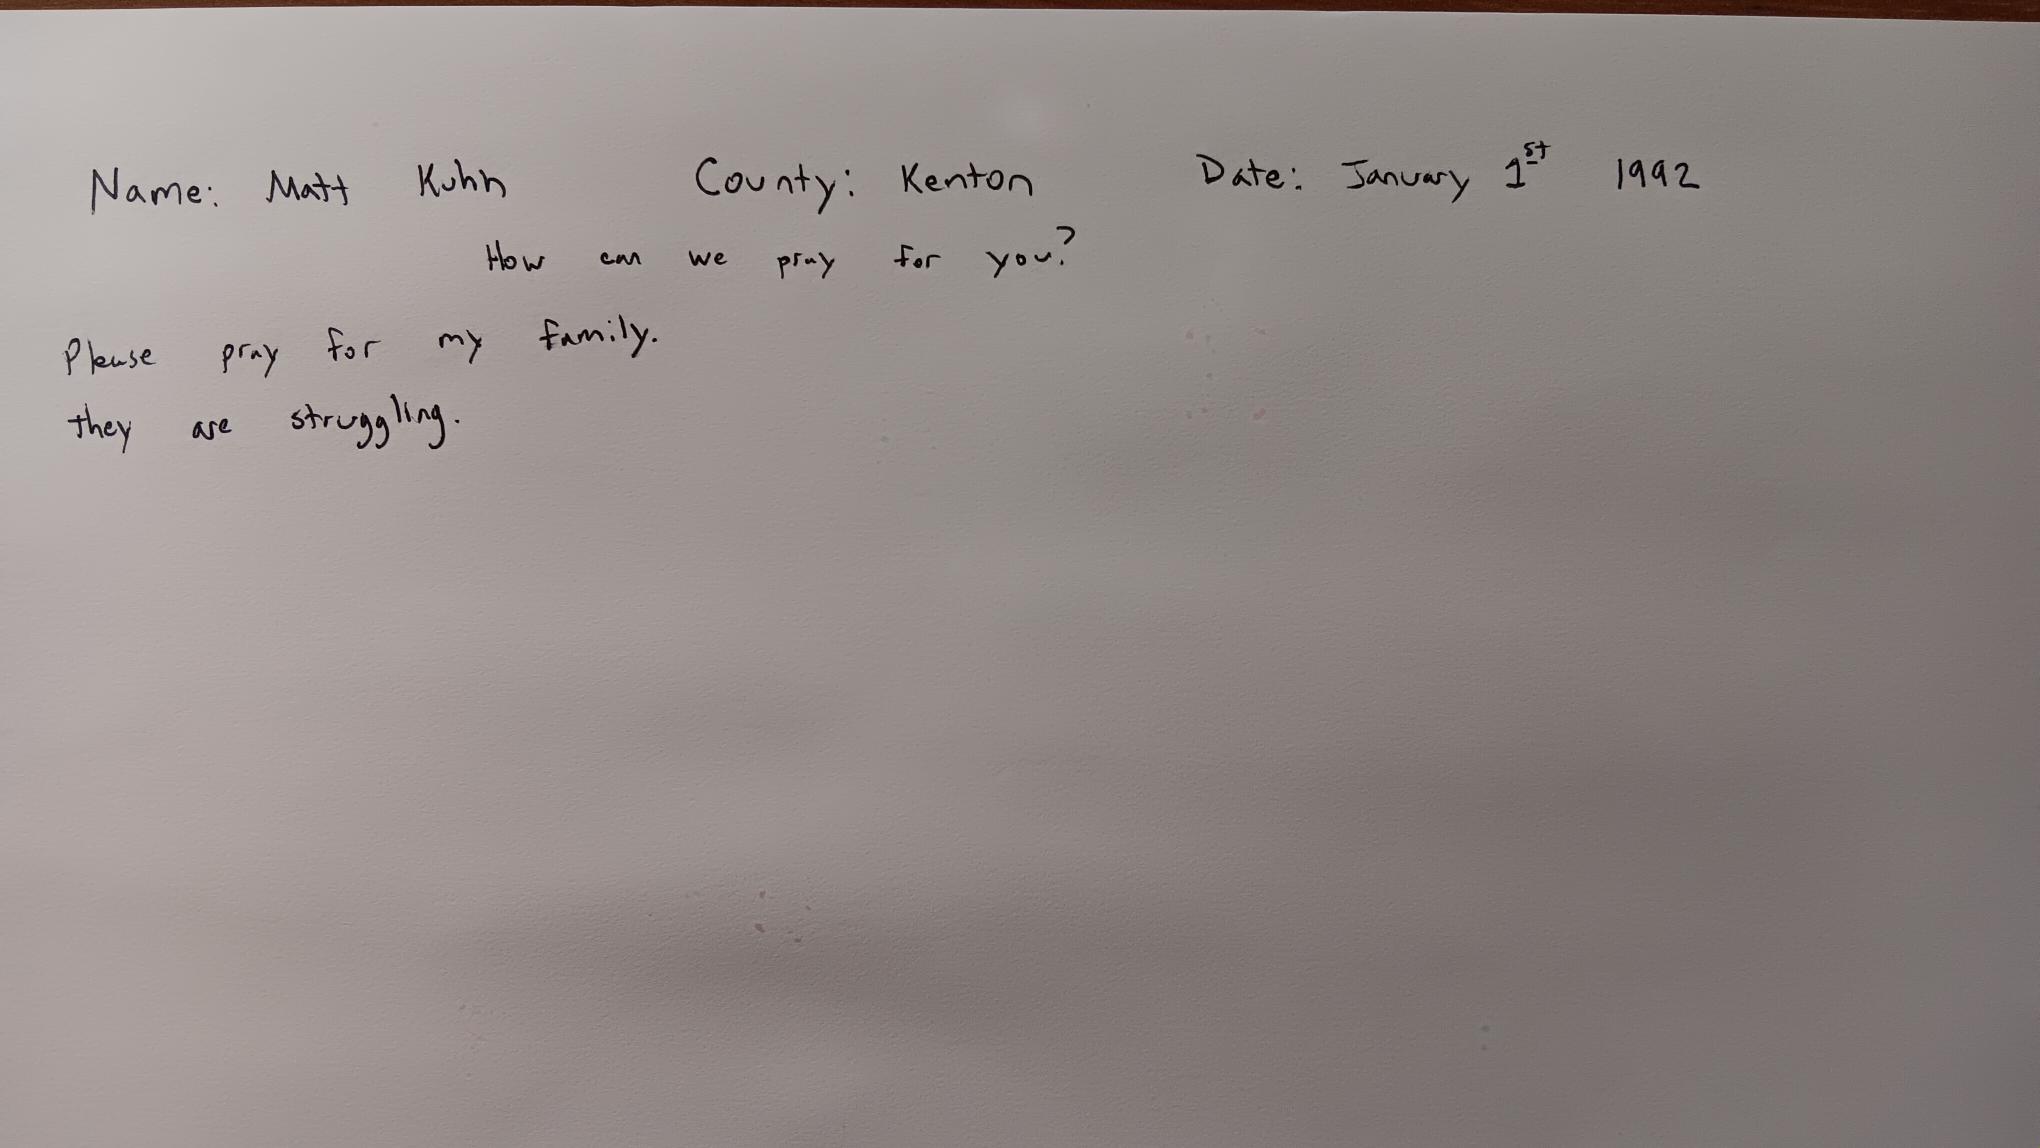 Name: Matt Kuhn County: Kenton Date: January 1st 1992
How can we pray for you?
Please pray for my family.
they are struggling.